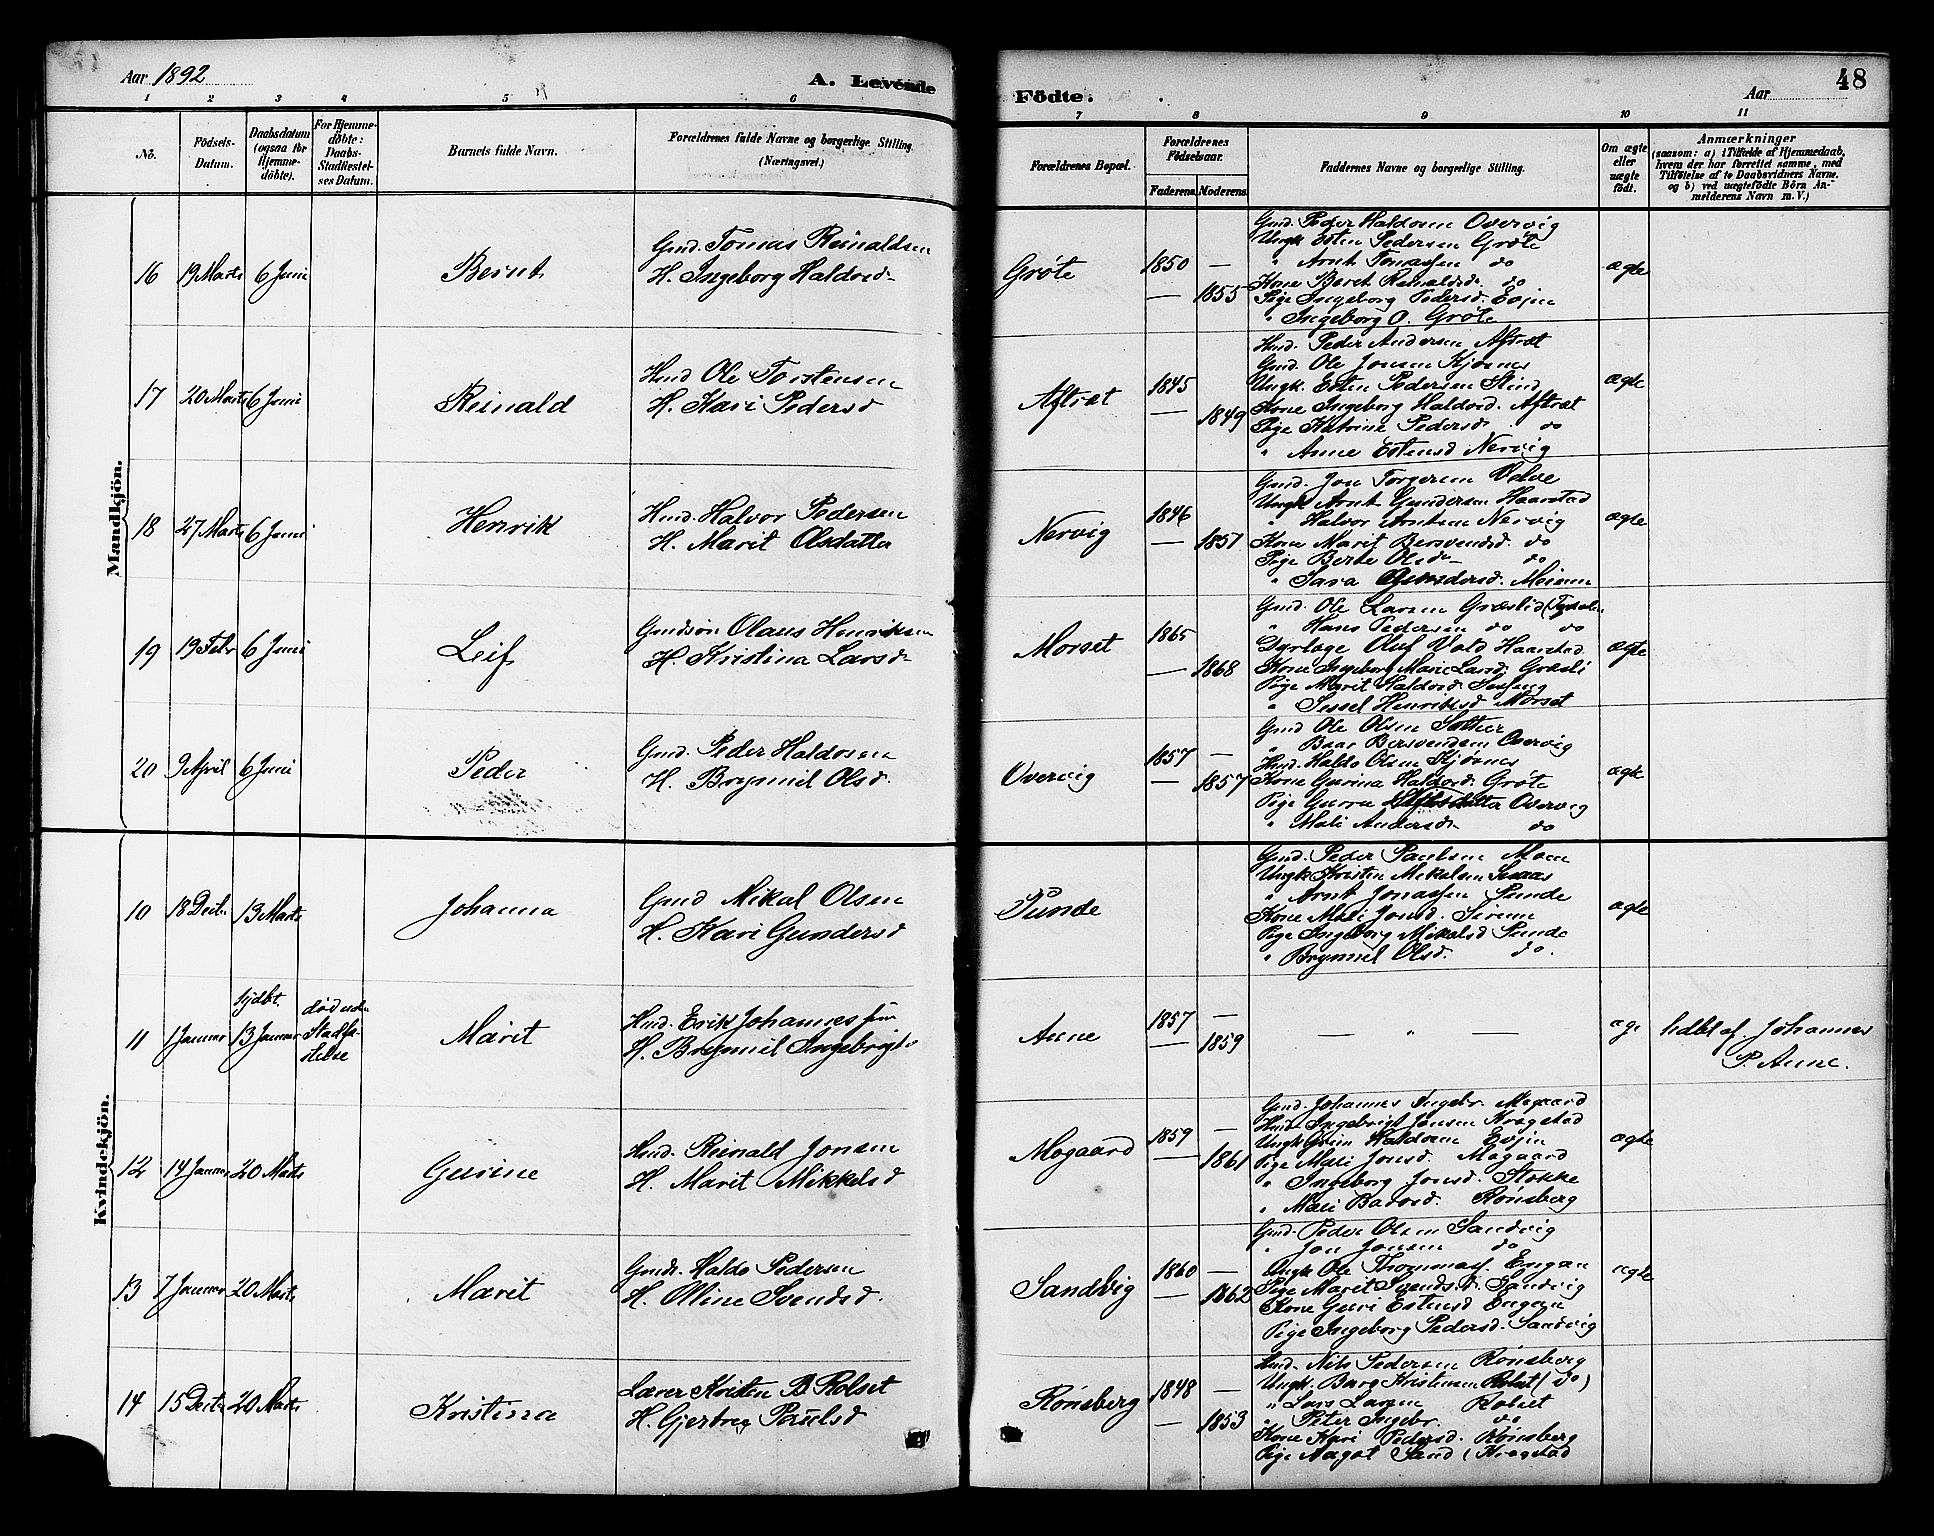 Aar 1892
A. Levende
Födte.
Aar
48
1 2 3 4 5 6 7 8 9 10 11
No.
Födsels-Datum.
Daabsdatum (ogsaa for Hjemmedöbte).
For Hjemmedöbte: Daabs-Stadfæstelses Datum.
Barnets fulde Navn.
Forældrenes fulde Navne og borgerlige Stilling. (Næringsvei.)
Forældrenes Bopæl.
Forældrenes Födselsaar.
Faderens. Moderens.
Faddernes Navne og borgerlige Stilling.
Om ægte eller uægte födt.
Anmærkninger
(saasom: a) i Tilfælde af Hjemmedaab, hvem der har forrettet samme, med Tilföielse af to Daabsvidners Navne, og b) ved uægtefödte Börn Anmelderens Navn m.V.)
Mandkjön.
16 19 Marts 6 Juni Bernt
Gmd. Tomas Reinaldsen
H. Ingeborg Haldosd
Grøte 1850 — — 1855
Gmd. Peder Haldosen Overvig
Ungk. Esten Pedersen Grøte
" Arnt Tomassen do
Kone Beret Reinaldsd. do
Pige Ingeborg Pedersd. Evjen
" Ingeborg O. Grøte
ægte
17 20 Marts 6 Juni Reinald
Hmd Ole Torstensen
H. Kari Pedersd
Aftræt 1845 — 1849
Hmd. Peder Andersen Aftræt
Gmd. Ole Jonsen Kjøsnes
Ungk. Esten Pedersen Stind
Kone Ingeborg Haldosd. Aftræt
Pige Katrine Pedersd do
" Anne Estensd Nervig
ægte
18 27 Marts 6 Juni Henrik
Hmd. Halvor Pedersen
H. Marit Olsdatter
Nervig 1846 — 1857
Gmd. Jon Torgersen Volve
Ungk Arnt Gundersen Haarstad
" Halvor Arntsen Nervig
Kone Marit Bersvendsd. do
Pige Berte Olsd do
" Sara Gundersd.
ægte
19 19 Febr 6 Juni Leif
Gmdsøn Olaus Henriksen
H. Kristina Larsd
Morset 1865 — 1868
Gmd. Ole Larsen Græsli (Tydalen
" Hans Pedersen do do
Dyrlæge Oluf Vold Haarstad
Kone Ingeborg Marie Larsd. Græsli
Pige Marit Haldosd.
" Sissel Henriksd Morset
ægte
20 9 April 6 Juni Peder
Gmd. Peder Haldosen
H. Brynnil Olsd.
Overvig 1857 — — 1857
Gmd Ole Olsen
" Baar Bersvendsen Overvig
Hmd. Haldo Olsen Kjøsnes
Kone Gurina Haldosd. Grøte
Pige Gurra Overvig
" Mali Andersd do
ægte
Kvindekjön.
10 18 Decbr. 13 Marts Johanna
Gmd Mikal Olsen
H. Kari Gundersd
Sunde
Gmd. Peder Paulsen Moen
Ungk Kristen Mikalsen
" Arnt Jonassen Sunde
Kone Mali Jonsd.
Pige Ingeborg Mikalsd Sunde
" Brynnil Olsd. do.
ægte
11 1 Januar hjdbt. 13 Januar død uden Stadfæstelse Marit
Hmd. Erik Johannessen
H. Brynnil Ingebrigts
Aune 1857 — — 1859
— " —
æge
hdbt af Johannes P. Aune.
12 14 Januar 20 Marts Gurine
Hmd. Reinald Jonsen
H. Marit Mikkelsd
Mogaard 1859 — — 1861
Gmd. Johannes Ingebr. Mogaard
Hmd. Ingebrigt Jonsen Kragstad
Ungk Haldosen Evjen
Pige Mali Jonsd. Mogaard
" Ingeborg Jonsd. Stokke
" Mari Rønsberg
ægte
13 7 Januar 20 Marts Marit
Gmds. Haldo Pedersen
H. Olline Svendsd.
Sandvig 1860 — — 1862
Gmd. Peder Olsen Sandvig
" Jon Jonsen do
Ungk Ole Thommass. Engan
Pige Marit Svendsd. Sandvig
Kone Guri Estensd Engan
Pige Ingeborg Pedersd. Sandvig
ægte
14 15 Decbr 20 Marts Kristina
Lærer Kristen B Rolset
H. Gjertrug Poulsd
Rønsberg 1848 — — 1853
Hmd. Nils Pedersen Rønsberg
Ungk. Barg Kristensen Rolset (do)
" Lars Larsen Rolset
" Peter Ingebr. do
Kone Kari Pedersd. Rønsberg
Pige Aagot Sand (Kragstad